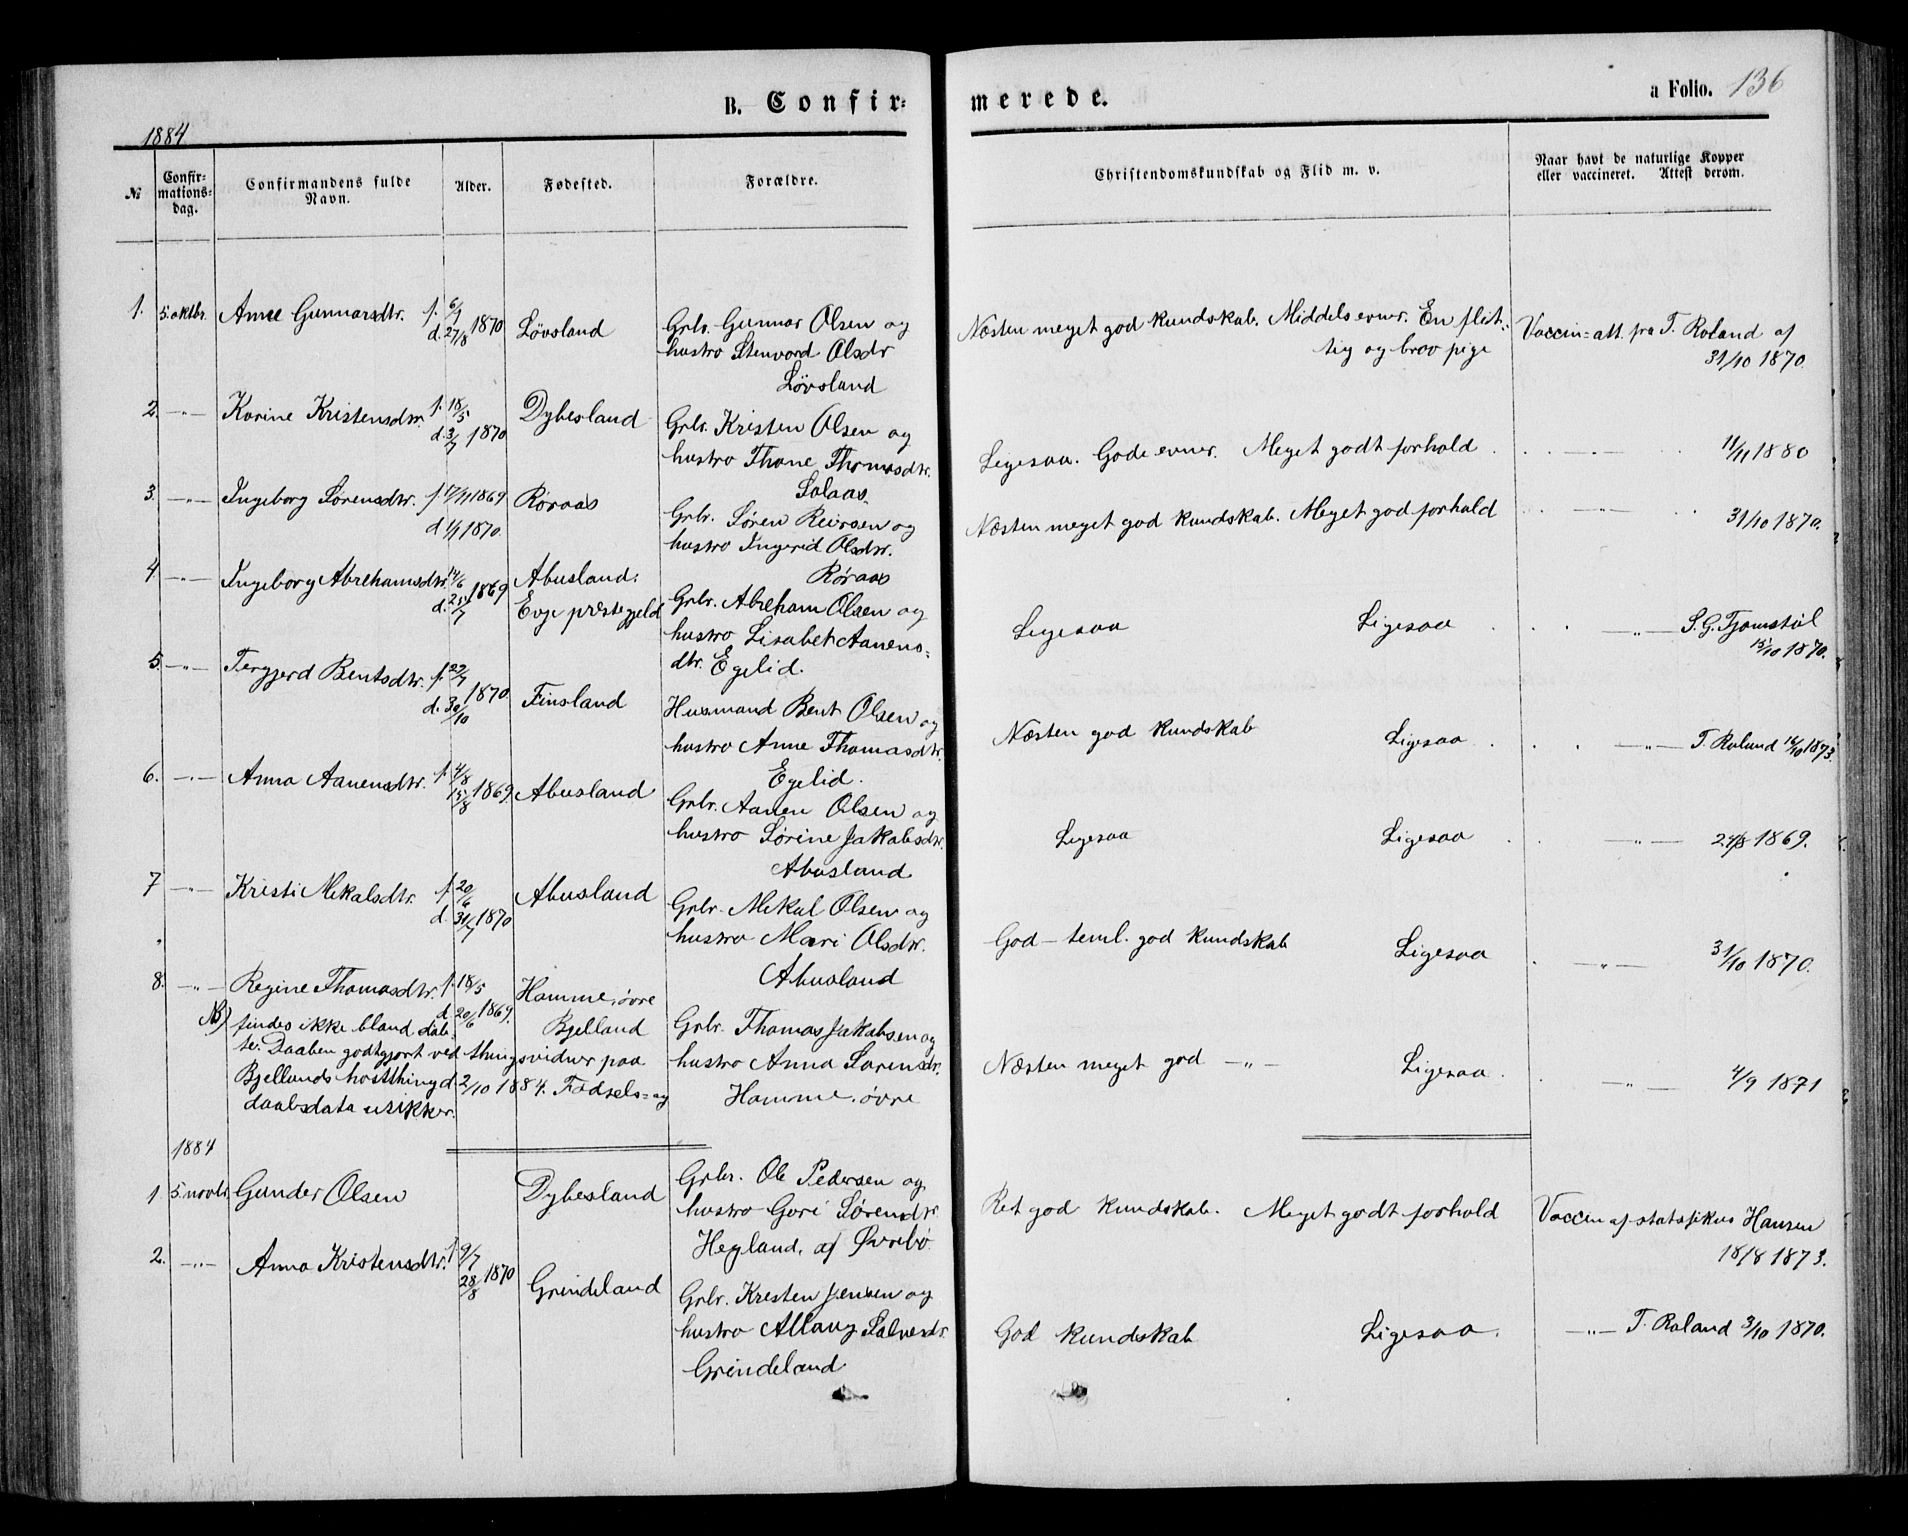 B. Confir-
merede.
a Folio. 136
1884
№
Confir-
mations-
dag.
Confirmandens fulde
Navn.
Alder.
Fødested.
Forældre.
Christendomskundskab og Flid m. v.
Naar havt de naturlige Kopper
eller vaccineret. Attest derom.
1. 5. oktbr. Anne Gunnarsdtr. f. 6/7 d. 27/8 1870 Løvsland
Grbr. Gunnar Olsen og
hustro Stenvord Olsdr
Løvsland
Næsten meget god kundskab. Middels evner. En flit-
tig og brav pige
Vaccin-att. fra T. Roland af
31/10 1870.
2. —"— Karine Kristensdtr. f. 18/5 d. 3/7 1870 Dybesland
Grbr. Kristen Olsen og
hustro Thone Thomasdtr.
Solaas
Ligesaa. Gode evner. Meget godt forhold
—"— 11/11 1880
3. —"— Ingeborg Sørensdtr. f. 17/11 1869 Røraas
d. 1/1 1870.
Grbr. Søren Reiersen og
hustro Ingerid Olsdtr.
Røraas
Næsten meget god kundskab. Meget god forhold
—"— 31/10 1870.
4 —"— Ingeborg Abrehamsdtr. 14/6 d. 25/7 1869 Abusland:
Evje præstegjeld
Grbr. Abreham Olsen og
hustro Lisabet Aanens-
dtr. Egelid.
Ligesaa Ligesaa
—"— S. G. Tjomstøl
15/10 1870.
5 —"— Tergjerd Bentsdtr. f. 22/7 d. 30/10 1870 Finsland
Husmand Bent Olsen og
hustro Anne Thomasdtr.
Egelid.
Næsten god kundskab Ligesaa
—"— T. Roland 16/10 1873.
6. —"— Anna Aanensdtr. f. 4/8 15/8 1869. Abusland
Grbr. Aanen Olsen og
hustro Sørine Jakobsdtr.
Abusland
Ligesaa Ligesaa
—"— 24/8 1869.
7 —"— Kristi Mikalsdtr. f. 20/6 d. 31/7 1870 Abusland
Grbr. Mikal Olsen og
hustro Mari Olsdtr.
Abusland
God - teml. god kundskab Ligesaa
—"— 31/10 1870.
8. —"— Regine Thomasdtr. f. 18/5 d. 20/6 1869. Homme, øvre
Bjelland
NB) findes ikke bland døb-
te. Daaben godtgjort ved thingsvidner paa
Bjellands hostthing d. 2/10 1884. Fødsels- og
daabsdata usikker.
Grbr. Thomas Jakobsen og
hustro Anna Sørensdr.
Homme, øvre
Næsten meget god —"— Ligesaa.
—"— 4/9 1871
1884
1 5. novbr. Gunder Olsen Dybesland
Grbr. Ole Pedersen og
hustro Gori Sørensdtr
Hegland, af Øvrebø.
Ret god kundskab. Meget godt forhold
Vaccin af statsfikus Hansen
18/8 1873.
2. —"— Anna Kristensdtr. f. 9/7 28/8 1870 Grindeland
Grbr. Kresten Jensen og
hustro Allaug Salvesdr.
Grindeland.
God kundskab Ligesaa.
—"— T. Roland 3/10 1870.